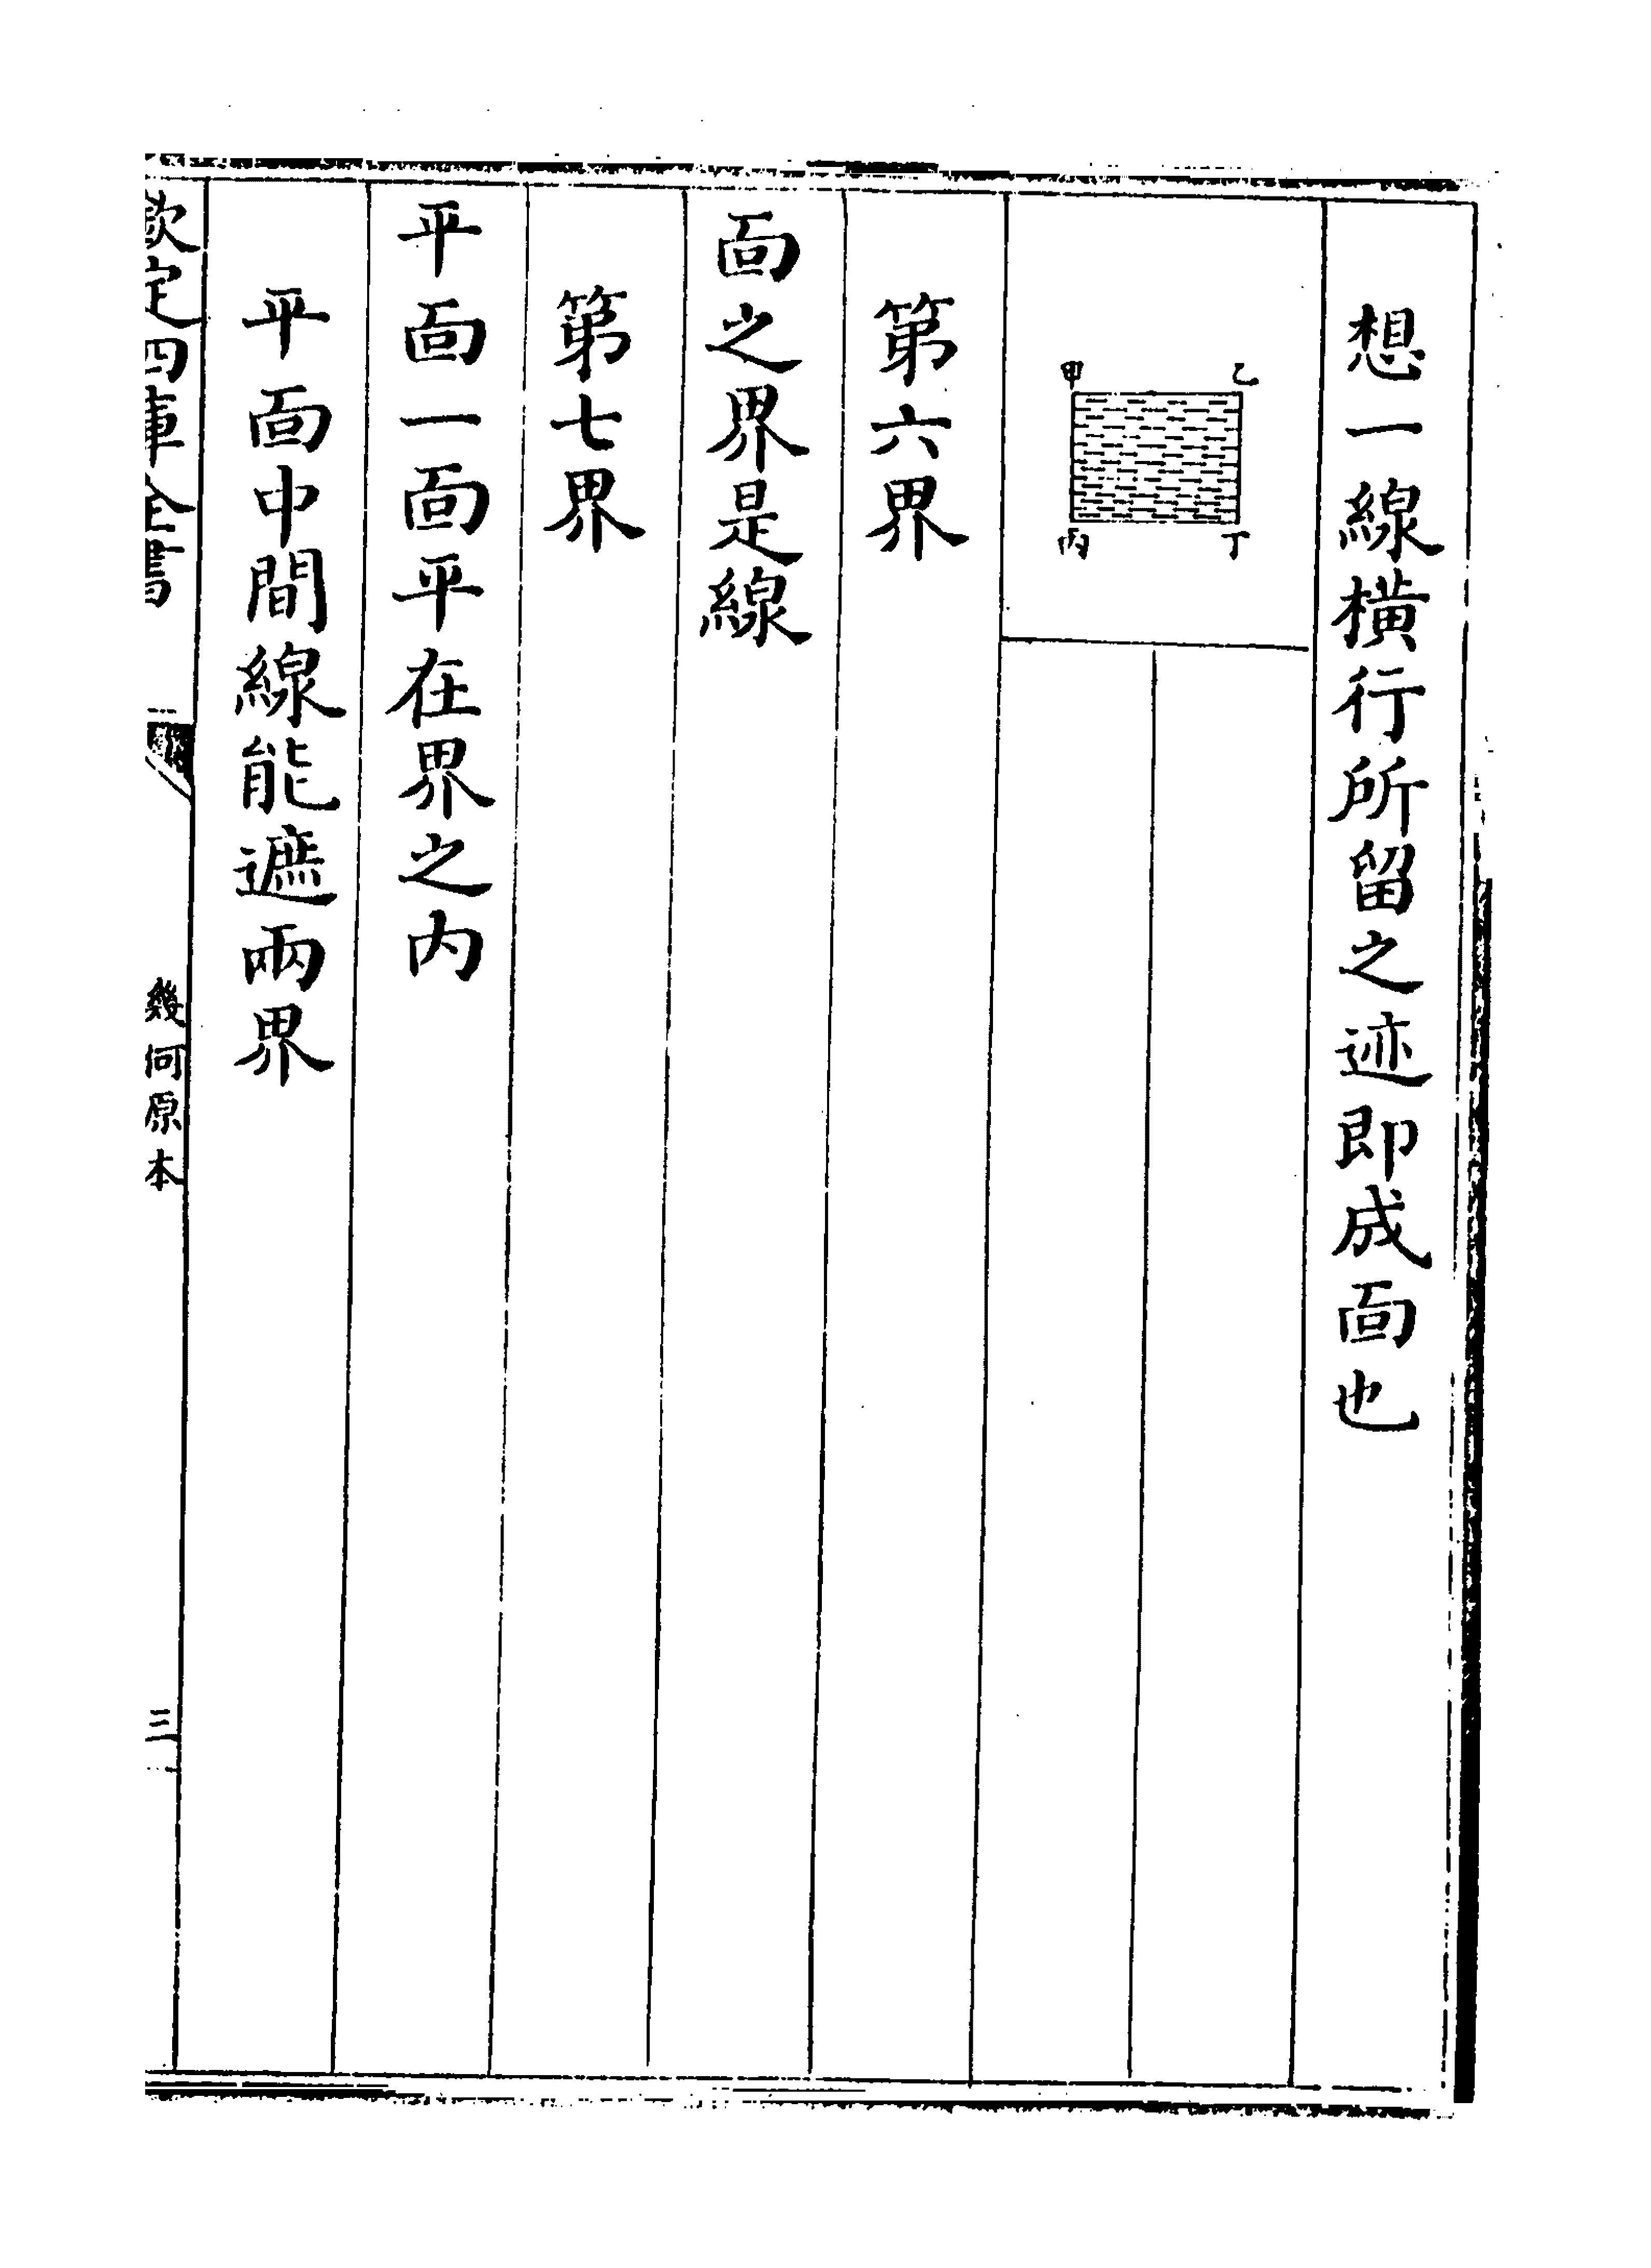 想一線橫行所留之迹即成面也
甲 乙
丙 丁
第六界
面之界是線
第七界
平面一面平在界之内
平面中間線能遮兩界
欽定四庫全書
幾何原本
三